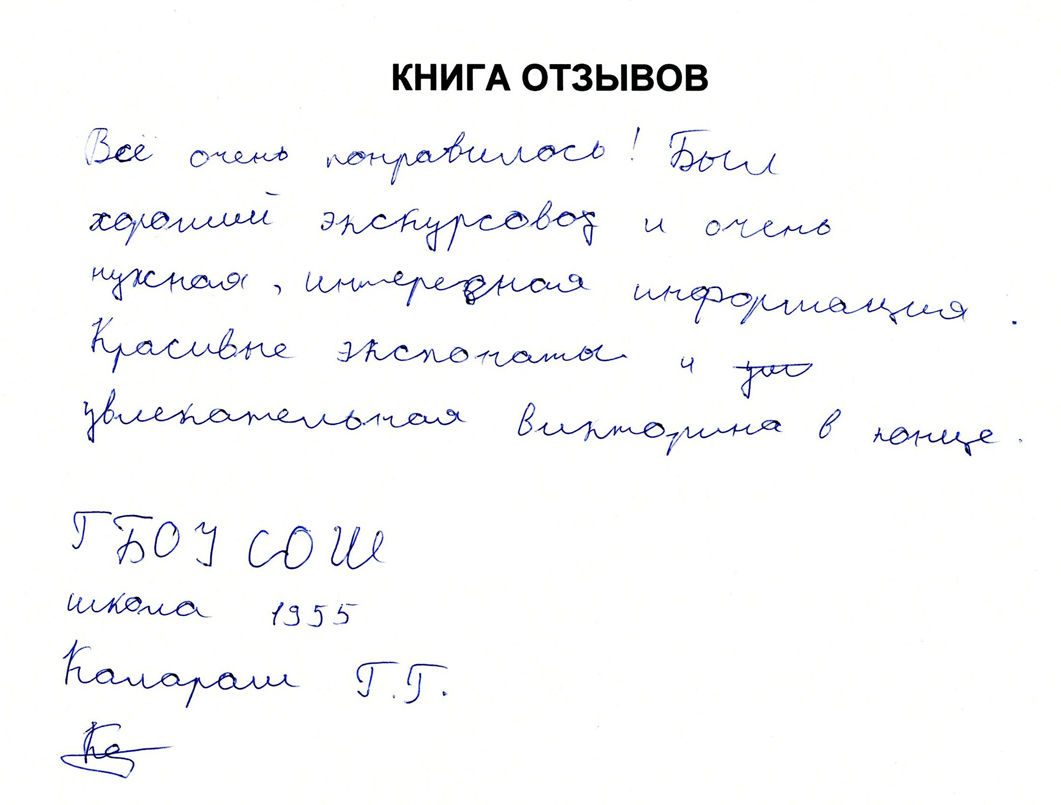 КНИГА ОТЗЫВОВ
Всё очень понравилось! Был
хороший экскурсовод и очень
нужная, интересная информация.
Красивые экспонаты и
увлекательная викторина в конце.
ГБОУ СОШ
школа 1955
Калараш Г.Г.